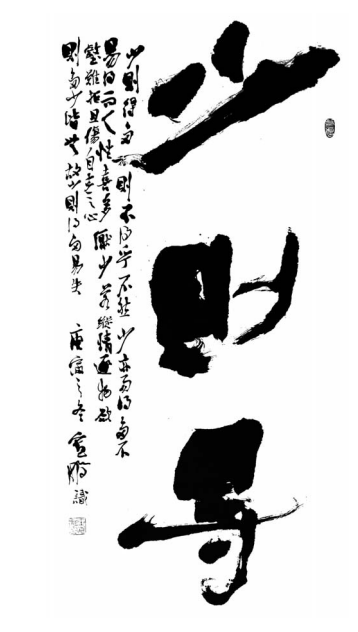 少則得
少則得多則不得乎不然少亦可得多不
易得而人性喜多厭少若縱情逐物欲
壑難填且傷自然之心
則多少皆失故少則得多易失 庚寅之冬 識